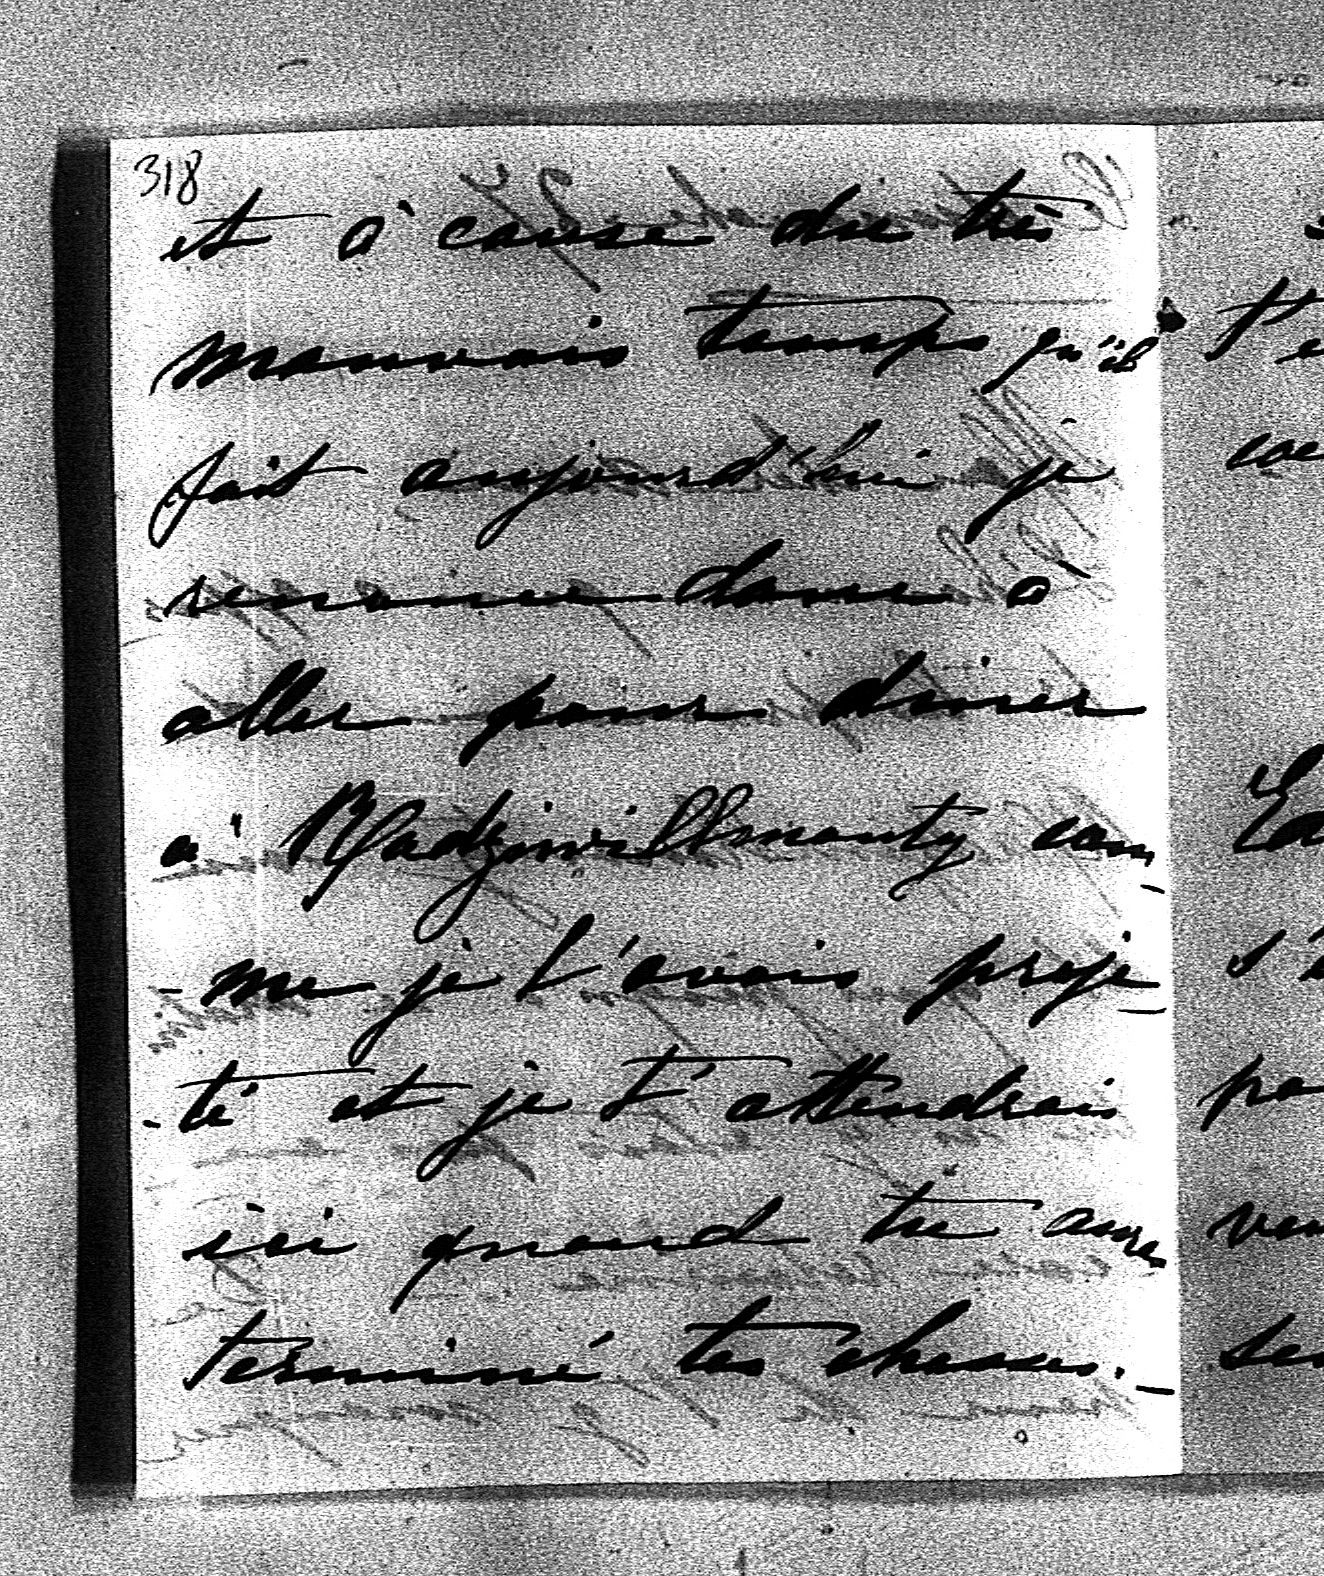 318
et à cause du très
mauvais temps qu'il
fait aujourd'hui je
renonce donc a
aller pour diner
a' Radziwillmonty com
- me je l'avais proje
- té et je t'attendrais
ici quand tu auras
terminé tes chasses. _